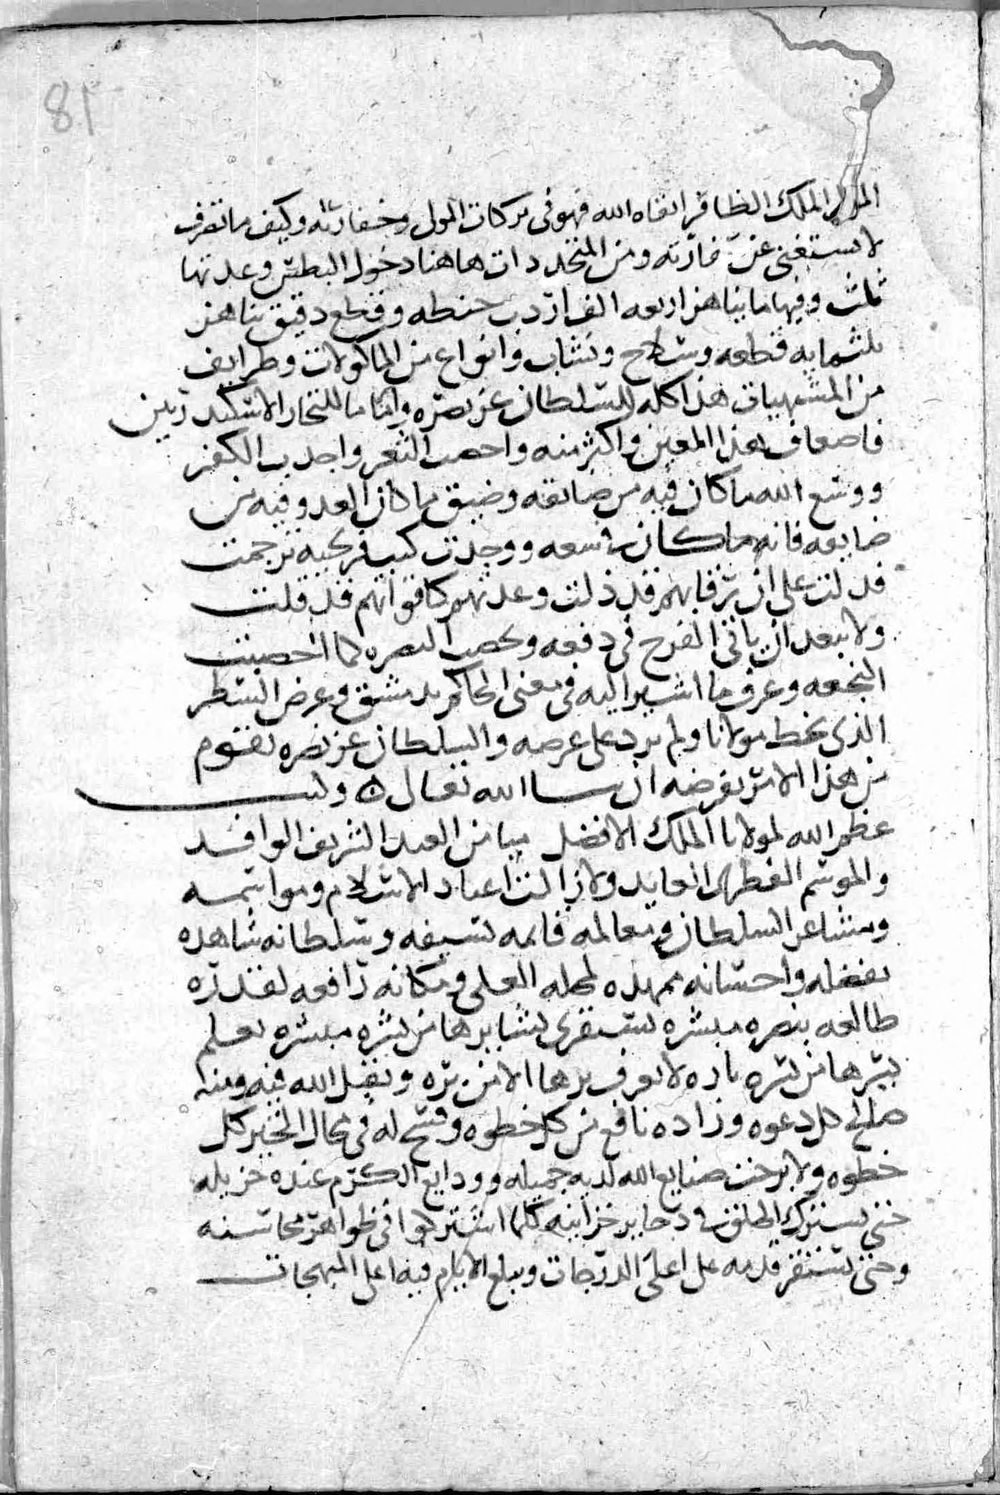 81
المولى الملك الظافر ابقاه الله فهو في بركات المولى وخفارته وكيف ما تصرف
لا يستغني عن غارته ومن المتجددات هاهنا دخول البطس وعدتها
ثلث وفيها ما يناهز اربعه الف اردب حنطه وقطع دقيق تناهز
ثلثمايه قطعه وسلاح ونشاب وانواع من الماكولات وطرايف
من المشتهيات هذا كله للسلطان عز نصره واما ما للتجار الاسكندرانيين
فاضعاف هذا المعين واكثر منه واخصب الثغر واجدب الكفر
ووسع الله ما كان فيه من ضايقه وضيق ما كان العدو فيه من
ضايعه فانه ما كان في سعه ووجدت كتب فرنجيه ترجمت
فدلت على ان رقابهم قد ذلت وعدتهم كاقواتهم قد قلت
ولا يبعد ان ياتي الفرج في دفعه ويخصب النصره كما اخصبت
النجعه وعرف ما اشير اليه في معنى الحاكم بدمشق وعرض السطر
الذي بخط مولانا ولم يزد على عرضه والسلطان عز نصره يقوم
من هذا الامر بفرضه ان شا الله تعالى ه وكتب
عظم الله لمولانا الملك الافضل ميامن العيد الشريف الوافد
والموسم الفطري العايد ولا زالت اعياد الاسلام ومواسمه
ومشاعر السلطان ومعالمه قايمه بسيفه وسلطانه شاهده
بفضله واحسانه ممهده لمحله العلي ومكانه رافعه لقدره
طالعه بنصره مبشره تستقري بشايرها من بشره مبشره تعلم
بشرها من بشره باره لا يعرف برها الا من بره وتقبل الله فيه ومنه
صلح كل دعوه وزاده نافع من كل خطوه وفتح له في مجال الخير كل
خطوه ولا برحت صنايع الله لديه جميله وودايع الكرم عنده جزيله
حتى يشترك الخلق في ذخاير خزاينه كلما اشتركوا في ظواهر محاسنه
وحتى تستقر قدمه على اعلى الدرجات ويبلغ الايام فيه اعلى المبهجات